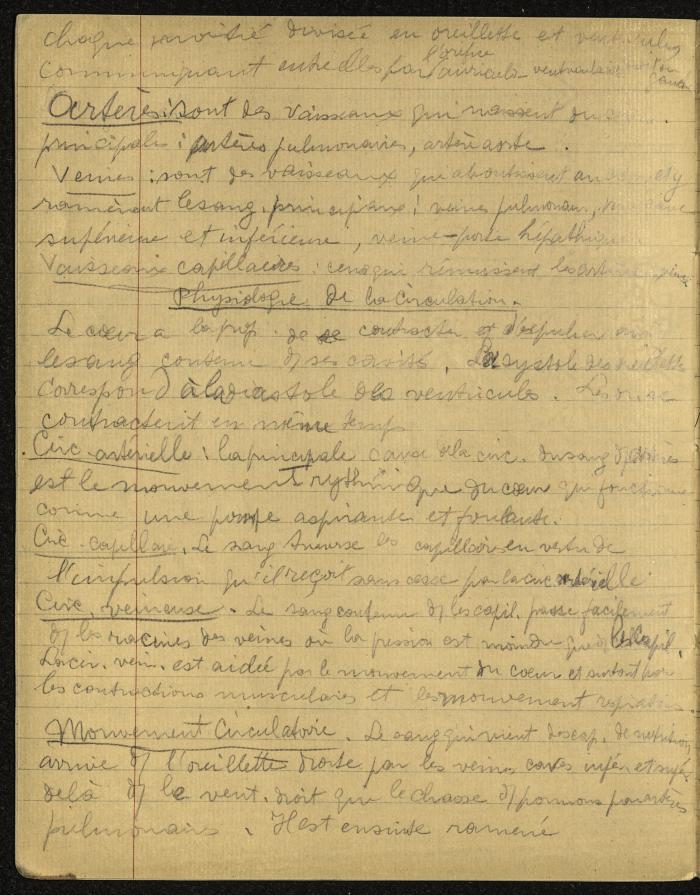 chaque moitié divisée en oreillette et ventricules
communiquant entre elles par l'orifice auriculo ventriculaire
Artères : sont des vaisseaux qui naissent du
principales : artères pulmonaires, artère aorte.
Veines : sont des vaisseaux qui aboutissent au et y
ramènent le sang. principaux : veines pulmonair,
supérieure et inférieure, veine-porte hépathique
Vaisseaux capillaires : ceux qui réunissent les
Physiologie de la Circulation.
Le cœur a la prop. de se contracter et d'expulser
le sang contenu ds ses cavité. La systole des
correspond à la diastole des ventricules. Les
contractent en même temps
Circ. artérielle : la principale cause de la circ. du sang ds
est le mouvement rythmique du cœur qui fonctionne
comme une pompe aspirante et foulante.
Circ. capillaire. Le sang traverse les capillaires en vertu de
l'impulsion qu'il reçoit sans cesse par la circ artérielle
Circ. veineuse. Le sang contenu ds les capil. passe facilement
ds les racines des veines où la pression est moindre que ds les capil.
La cir. vein. est aidée par le mouvement du cœur et surtout par
les contractions musculaires et les mouvement
Mouvement Circulatoire. Le sang qui vient des cap. de nutrition
arrive ds l'oreillette droite par les veines caves infér et supé
de là ds le vent. droit qui le chasse ds poumons par artères
pulmonaires. Il est ensuite ramené